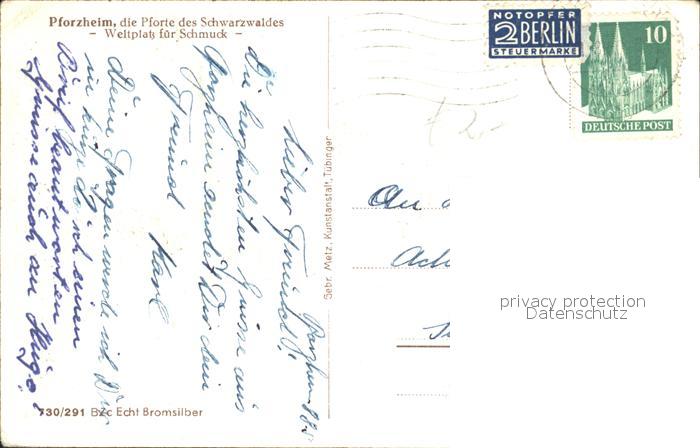 Pforzheim, die Pforte des Schwarzwaldes
- Weltplatz für Schmuck -
NOTOPFER
2 BERLIN
STEUERMARKE
10
DEUTSCHE POST
Lieber Freund!
Die herzlichsten Grüsse aus
Pforzheim sendet Dir dein
Freund Karl
Deine Fragen werde ich Dir
in Kürze durch einen
Brief beantworten
Grüsse auch an Hugo!
Gebr. Metz, Kunstanstalt, Tübingen
An
Ach
730/291 Bzc Echt Bromsilber
privacy protection
Datenschutz